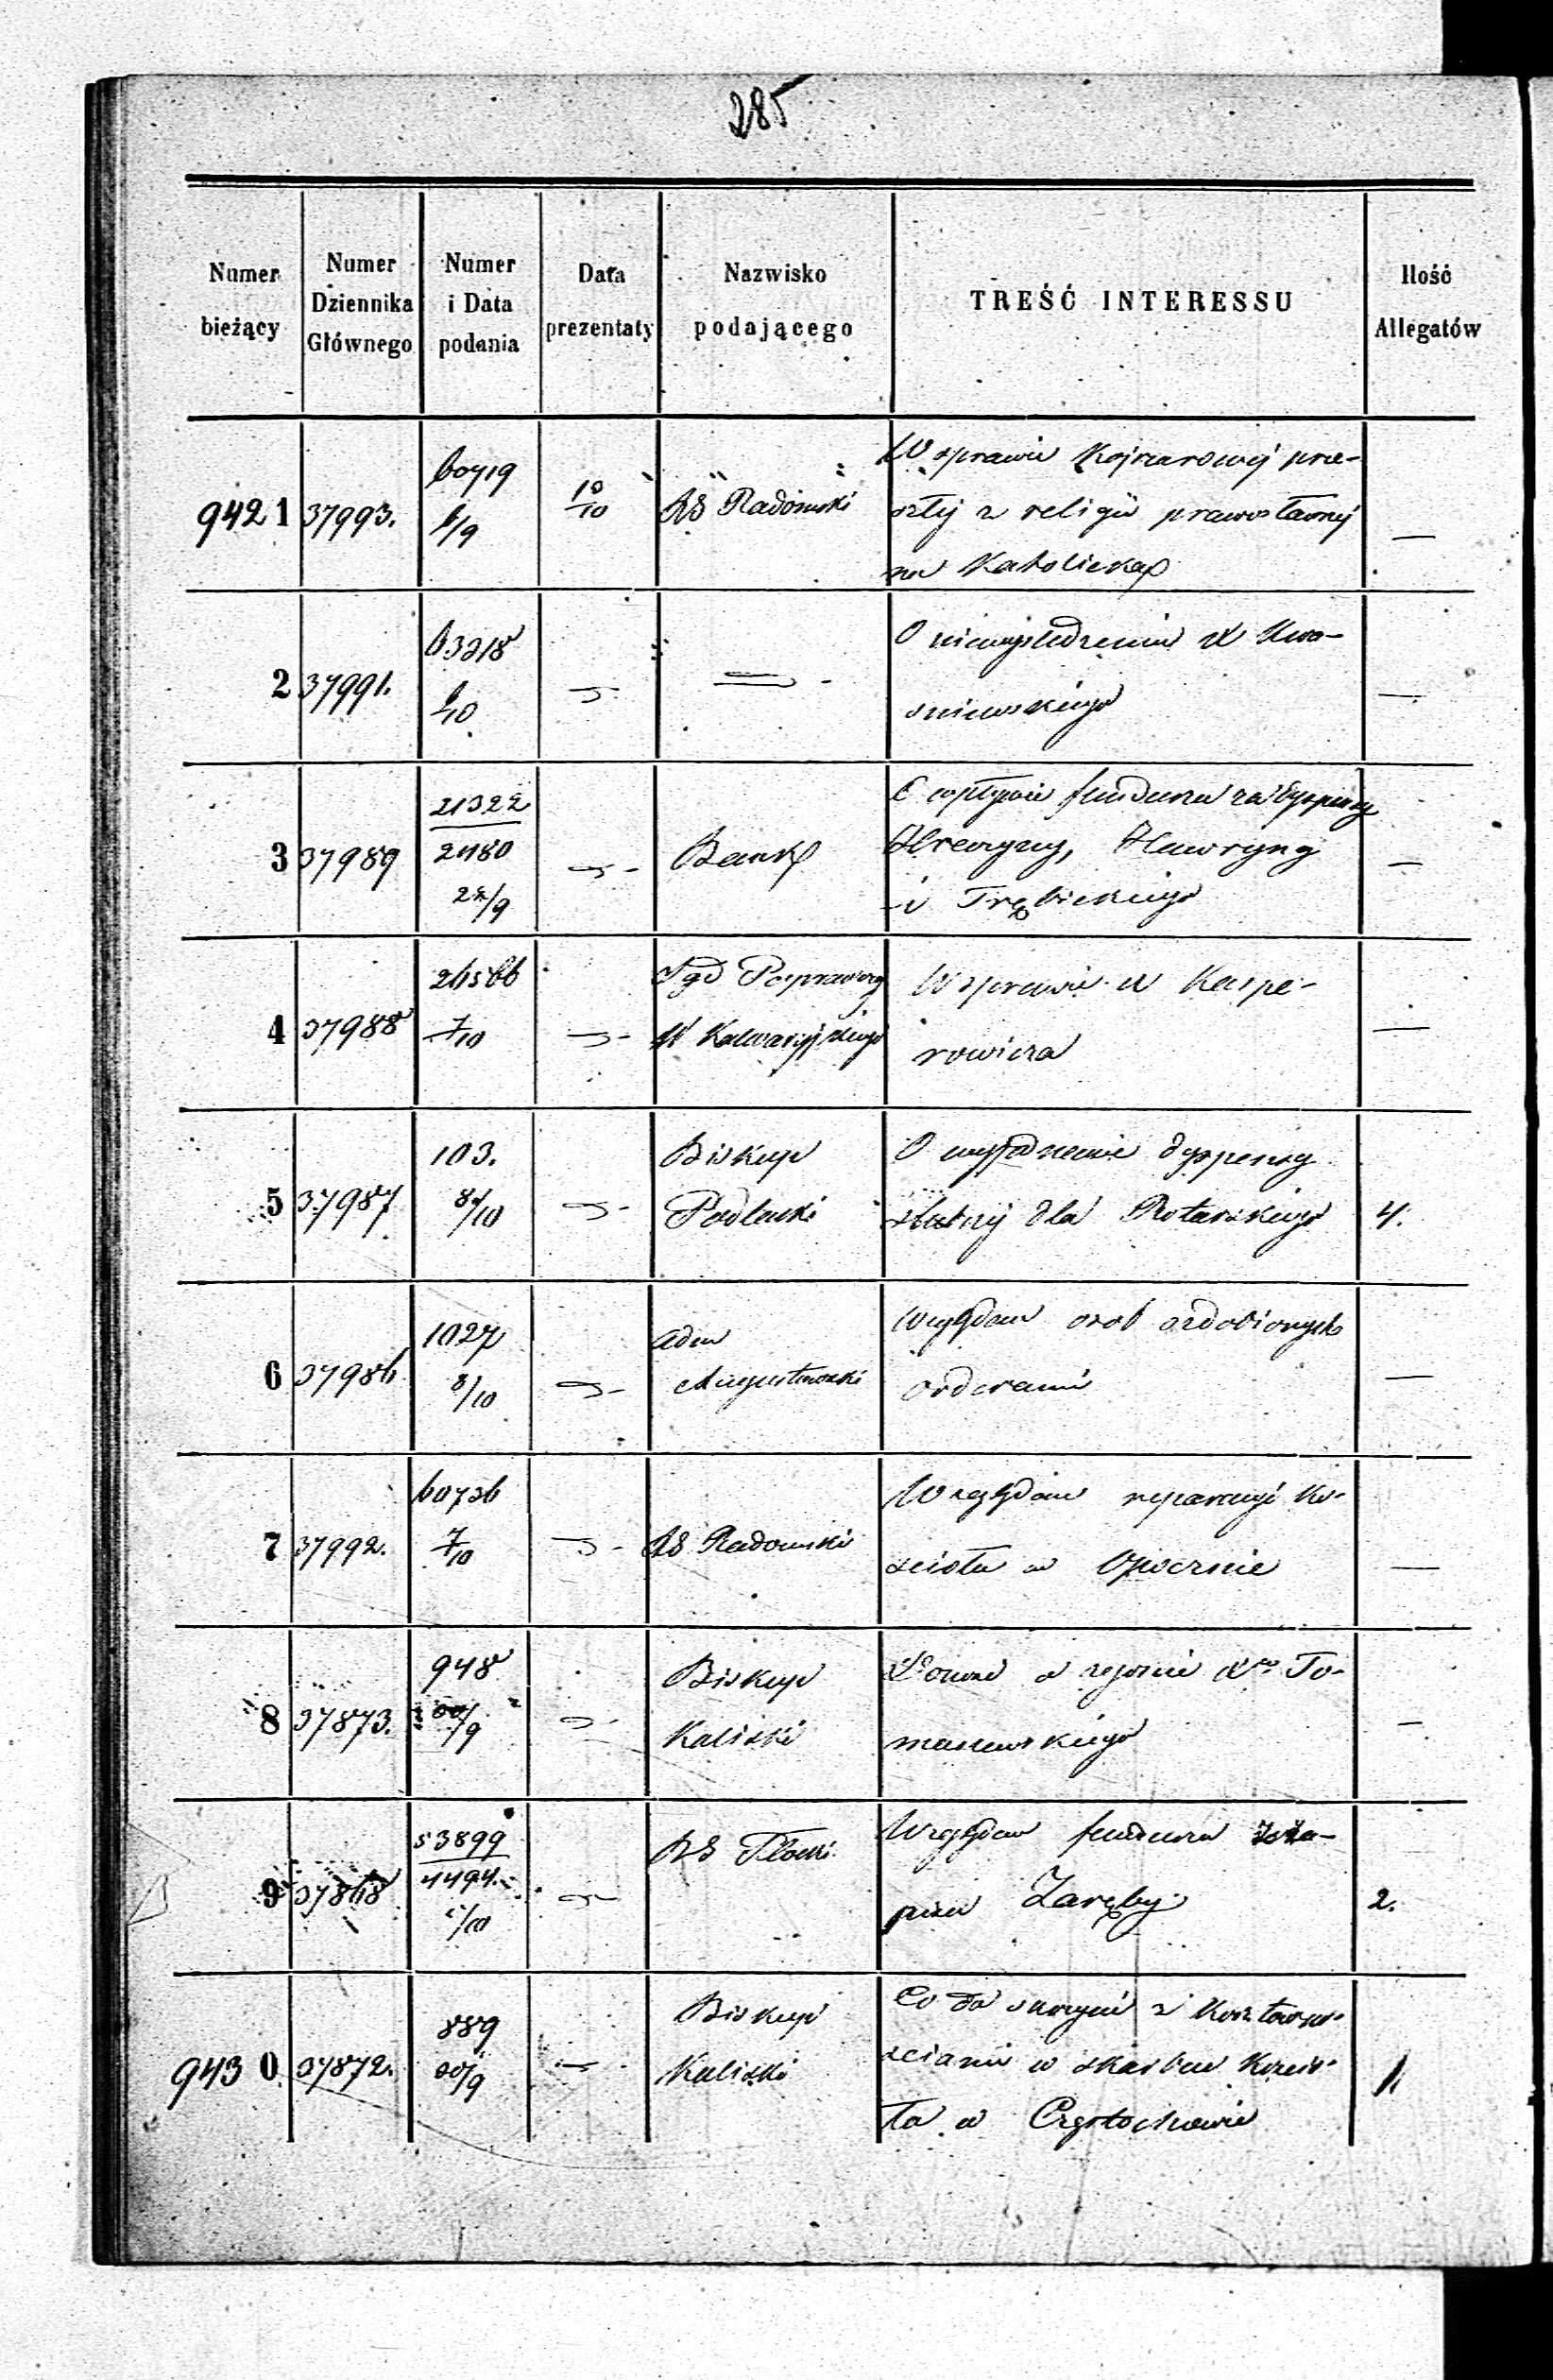 285
Numer bieżący
Numer Dziennika Głównego
Numer i Data podania
Data prezentaty
Nazwisko podającego
TREŚĆ INTERESSU
Ilość Allegatów
9421 37993. 60719 6/9 10/10 RG Radomski
W sprawie Kojrarowej prze-
szłej z religii prawosławnej
na Katolicką
—
2 37991. 63218 /10
O niewyśledzeniu X Kwa-
śniewskiego
—
3 37989 21322 / 2980 /9 Bank
O wpływie funduszu za dyspensy
i Trębickiego
—
4 37988 26566 7/10 Sąd Poprawczy
W Kalwaryjskiego
W sprawie X Kaspe-
rowicza
—
5 37987 103. 8/10 Biskup
Podlaski
O wyjednanie dyspensy
ślubnej dla Rotarskiego
4.
6 37986 1027 8/10 Adm
Augustowski
Względem osób ozdobionych
orderami
—
7 37992. 60736 7/10 RG Radomski
Względem reparacyi Ko-
ścioła w Opocznie
—
8 37873. 948 30/9 Biskup
Kaliski
Donosi o zgonie Xa To-
maszewskiego
—
9 37868 53899 / 4494. /10 RG Płocki
Względem funduszu
Zaręby
2.
9430 37872. 889 30/9 Biskup
Kaliski
Co do skrzyń z Kosztowno-
ściami w skarbcu Kościo-
ła w Częstochowie
1